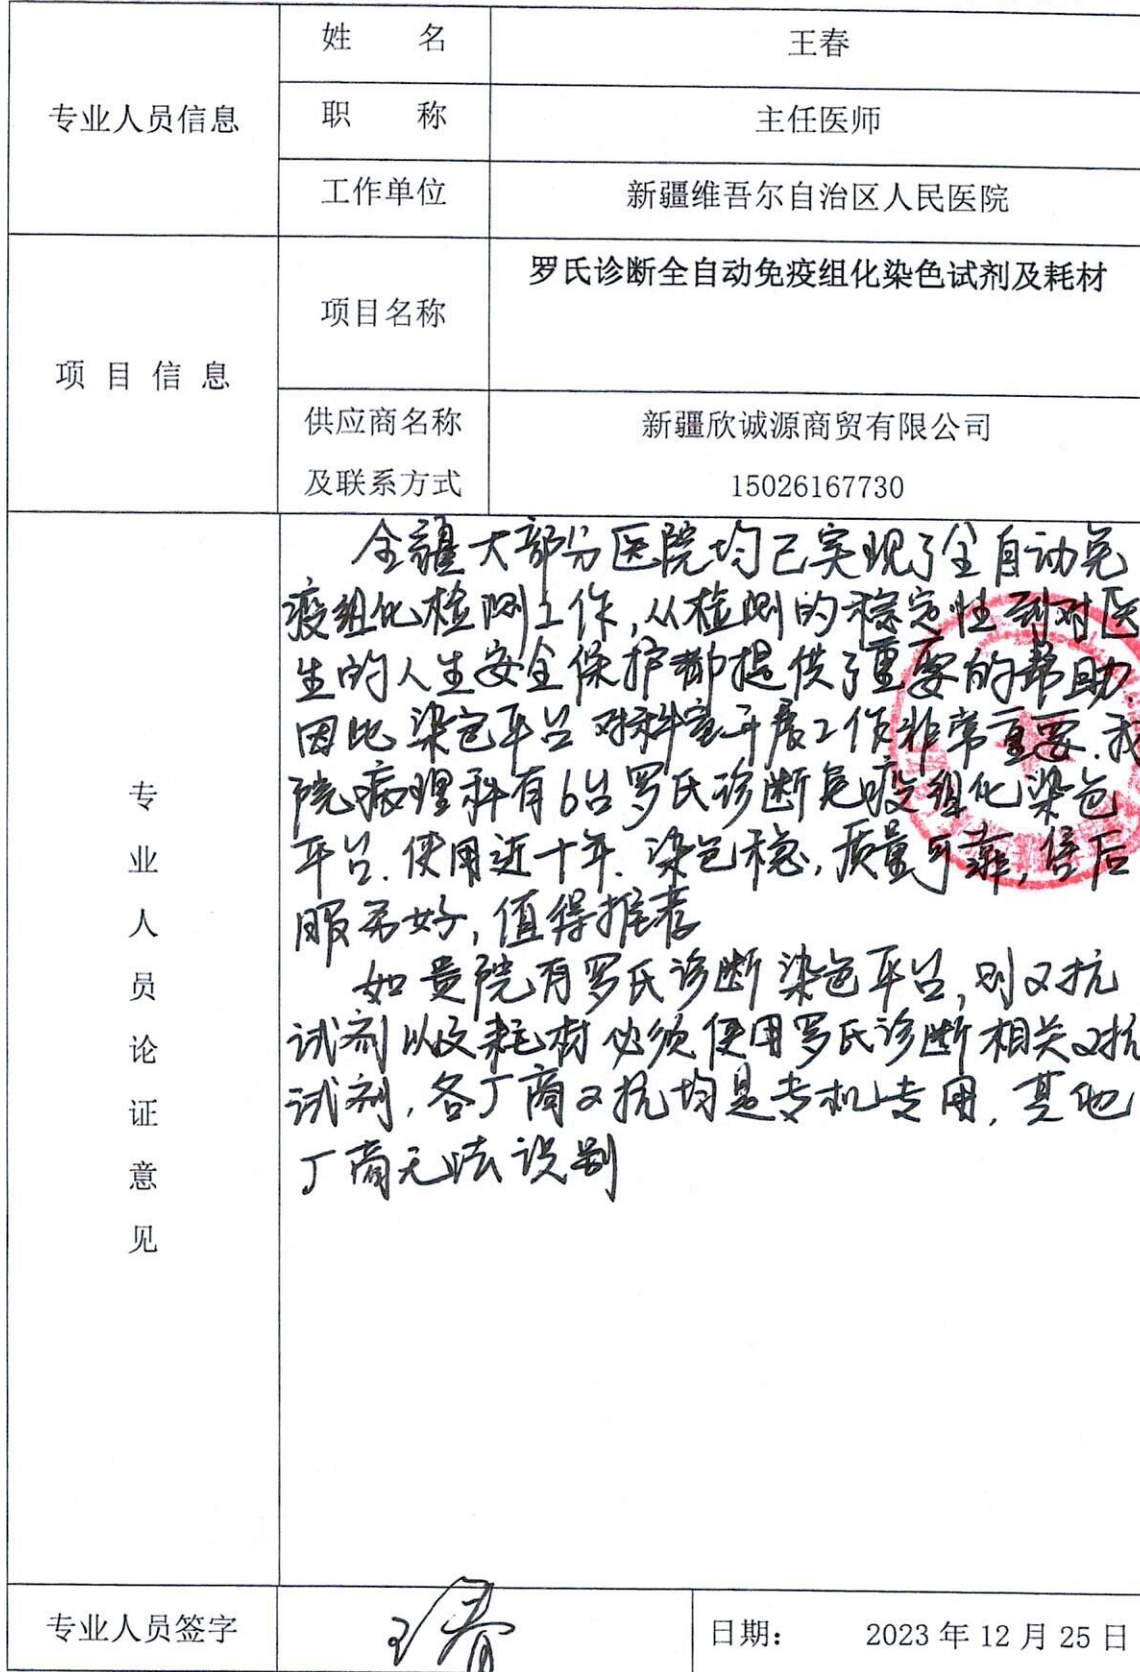 专业人员信息
姓 名
王春
职 称
主任医师
工作单位
新疆维吾尔自治区人民医院
项目信息
项目名称
罗氏诊断全自动免疫组化染色试剂及耗材
供应商名称
及联系方式
新疆欣诚源商贸有限公司
15026167730
专业人员论证意见
全疆大部分医院均已实现了全自动免
疫组化检测工作,从检测的稳定性到对医
生的人生安全保护都提供了重要的帮助.
因此染色平台对科室开展工作非常重要.我
院病理科有6台罗氏诊断免疫组化染色
平台.使用近十年.染色稳,质量可靠,售后
服务好,值得推荐
如贵院有罗氏诊断染色平台,则又抗
试剂以及耗材必须使用罗氏诊断相关又抗
试剂,各厂商又抗均是专机专用,其他
厂商无法识别
专业人员签字
王春
日期: 2023年12月25日